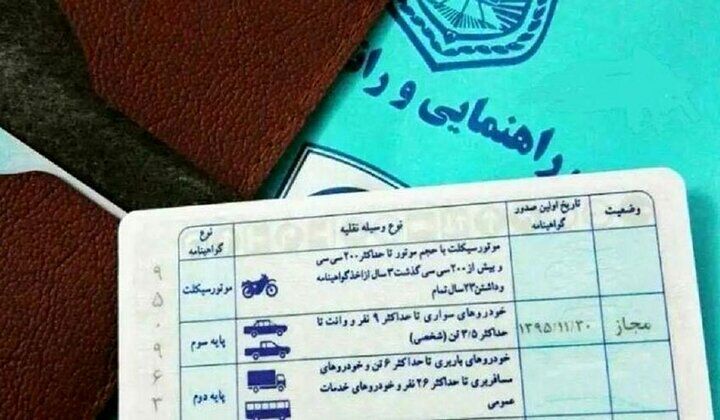 راهنمایی و را
وضعیت
تاریخ اولین صدور
گواهینامه
نوع وسیله نقلیه
نوع
گواهینامه
موتورسیکلت با حجم موتور تا حداکثر ۲۰۰ سی سی
و بیش از ۲۰۰ سی سی گذشت ۳ سال ازاخذگواهینامه
وداشتن ۲۳ سال تمام
موتورسیکلت
مجاز
۱۳۹۵/۱۱/۳۰
خودروهای سواری تا حداکثر ۹ نفر و وانت تا
حداکثر ۳/۵ تن (شخصی)
پایه سوم
خودروهای باربری تا حداکثر ۶ تن و خودروهای
مسافربری تا حداکثر ۲۶ نفر و خودروهای خدمات
عمومی
پایه دوم
۹
۵
۰
۹
۶
۳